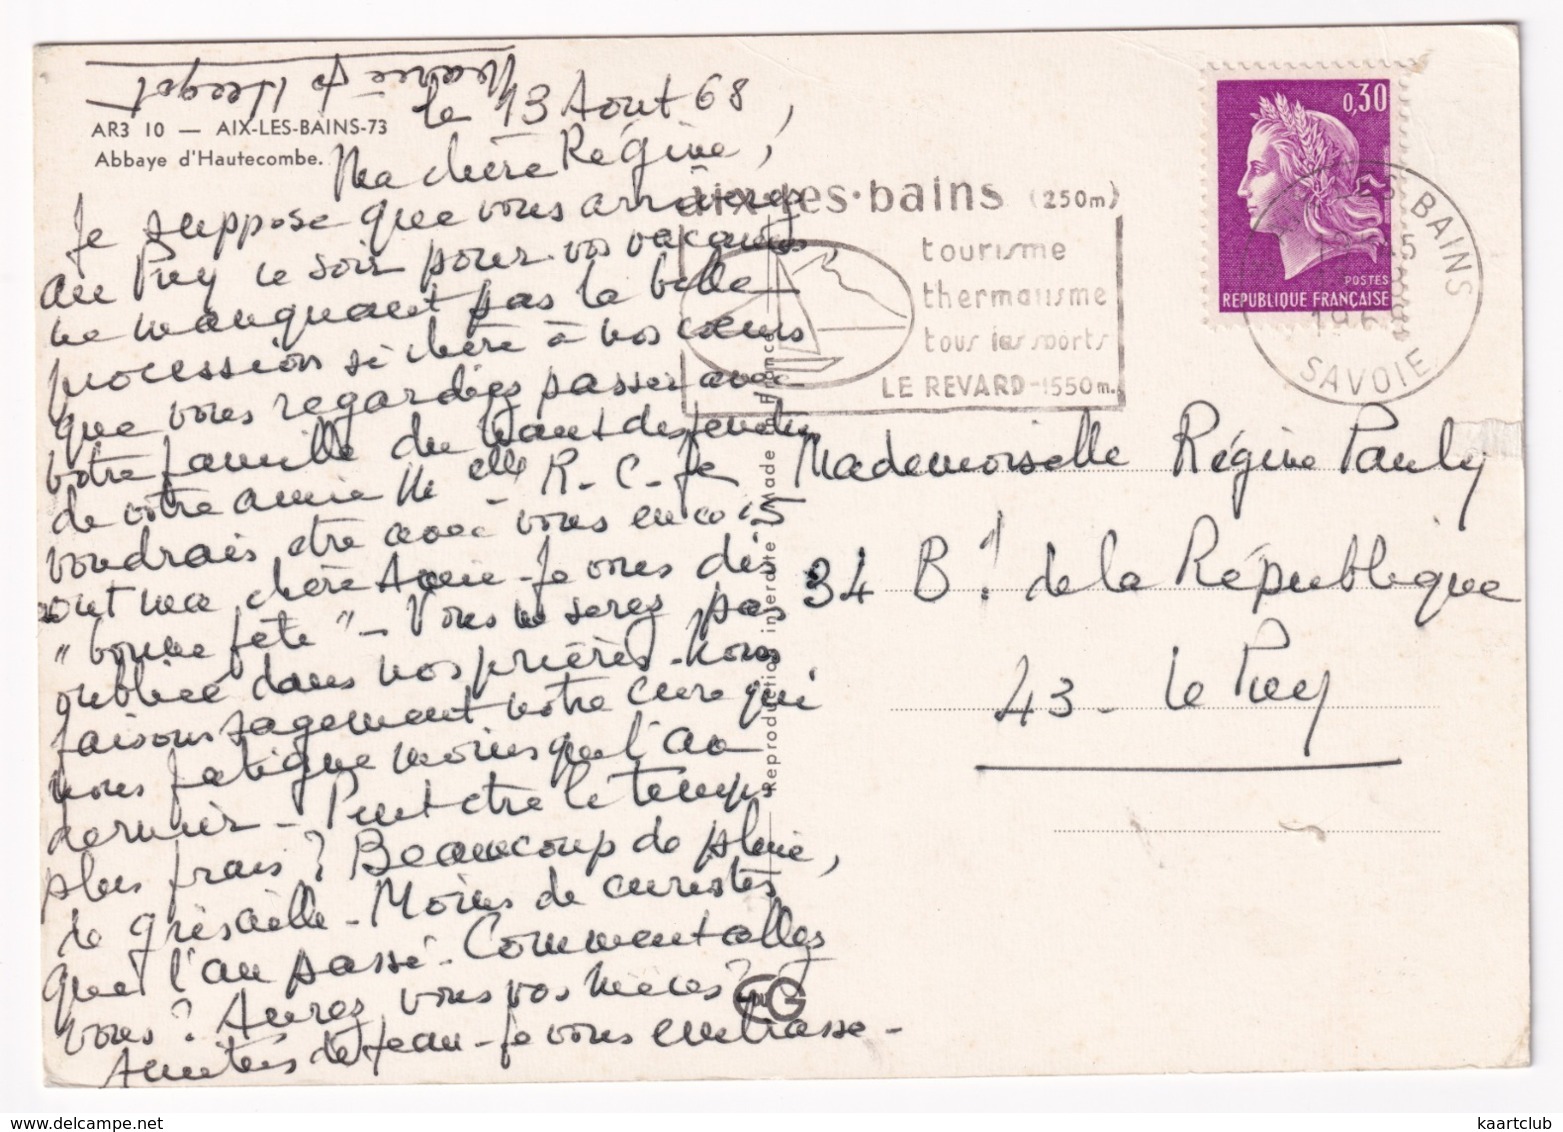 le 13 Aout 68,
AR3 10 — AIX-LES-BAINS-73
Abbaye d'Hautecombe.
Ma chère Régine,
Je suppose que vous arriverez
au Puy ce soir pour vos vacances
ne manquant pas la belle
procession si chère à vos cœurs
que vous regardiez passer avec
votre famille du haut des fenêtres
de votre amie Melle R. C. Je
voudrais être avec vous en ce 15
out ma chère Amie - Je vous dis
"bonne fête" - Vous ne serez pas
oubliée dans nos prières - Nous
faisons sagement notre cure qui
nous fatigue moins que l'an
dernier - Peut être le temps
plus frais ? Beaucoup de pluie,
de grisaille - Moins de curistes
que l'an passé - Comment allez
vous ? Aurez vous vos nièces ?
Amitiés de Jean - Je vous embrasse -
aix-les-bains (250m)
tourisme
thermalisme
tous les sports
LE REVARD - 1550 m.
0,30
POSTES
REPUBLIQUE FRANÇAISE
LES BAINS
196
SAVOIE
Reproduction interdite
Made France
Mademoiselle Régine Pauly
34 Bd de la République
43 - Le Puy
kaartclub